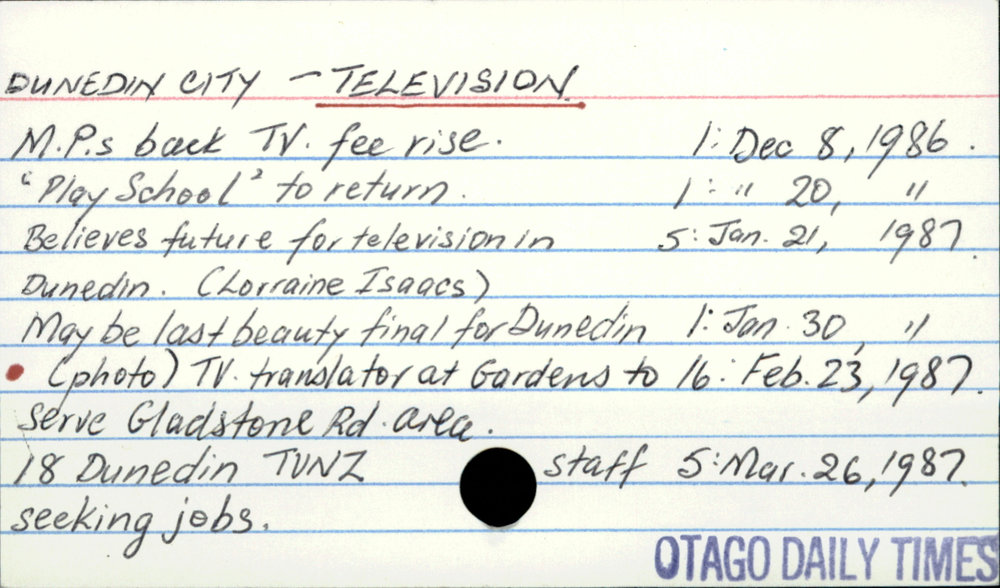 DUNEDIN CITY - TELEVISION.
M.P.s back TV. fee rise. 1: Dec 8, 1986.
"Play School" to return. 1: " 20, "
Believes future for television in 5: Jan. 21, 1987.
Dunedin. (Lorraine Isaacs)
May be last beauty final for Dunedin 1: Jan. 30, "
(photo) TV. translator at Gardens to 16: Feb. 23, 1987.
serve Gladstone Rd. area.
18 Dunedin TVNZ staff 5: Mar. 26, 1987.
seeking jobs.
OTAGO DAILY TIMES